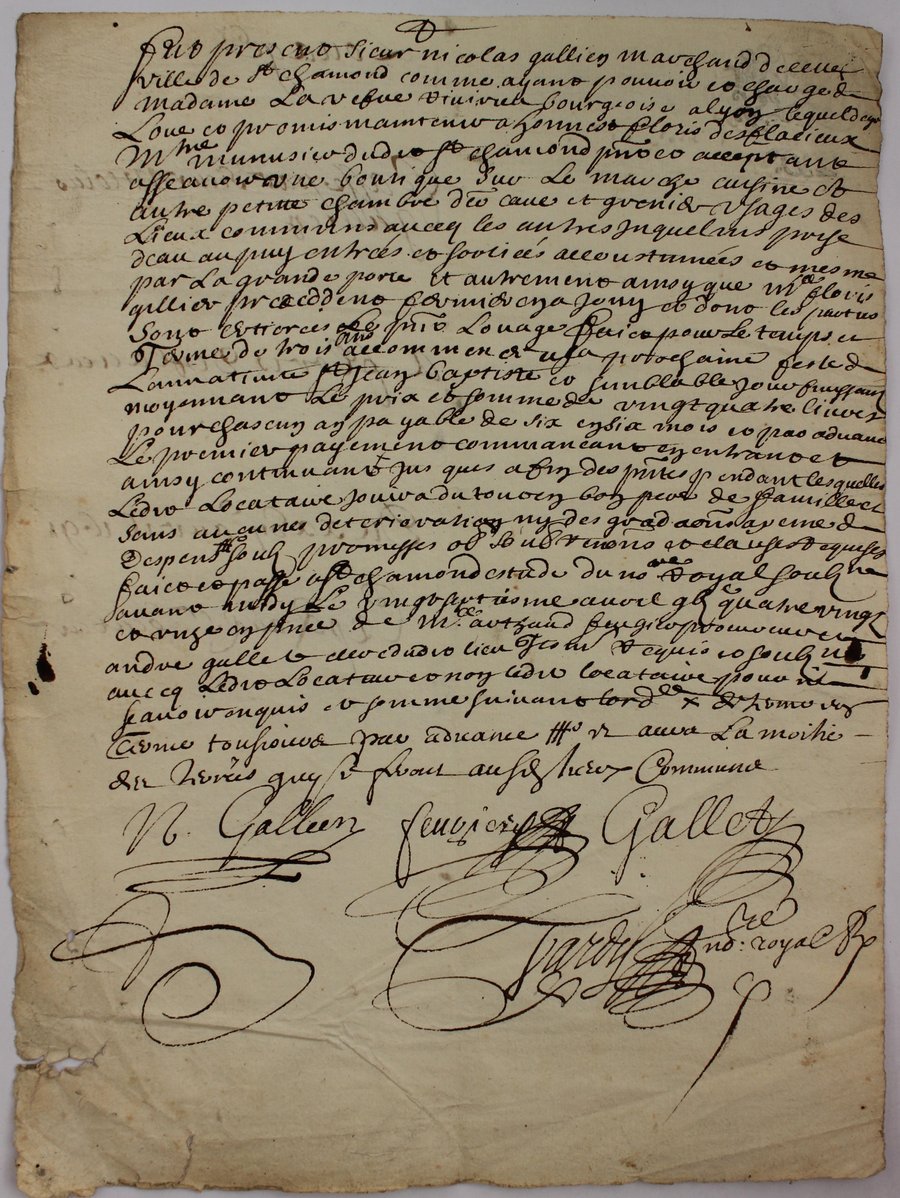 fut present sieur nicolas gallien marchand de cette
ville de st chamond comme ayant pouvoir et charge de
madame La vefve bourgeoise a lyon lequel de gré
Loue et promis maintenir a honnest floris desflacieux
Mtre munusier dudit st chamond pnt et acceptant
asscavoir une boutique sur Le marche cuisine et
autre petitte chambre cave et grenier usages des
Lieux communs avecq les autres Inquelins prise
deau au puy entrees et sorties accoustumees et mesme
par La grande porte et autrement ainsy que floris
gillier preceddent fermier en a jouy et dont les parties
sont certiorees Le pnt Louage faict pour Le temps et
Terme de trois ans a commencer a La prochaine feste de
La nativite st Jean baptiste et semblable jour finissant
moyennant Le prix et somme de vingt quatre livres
pour chascun an payable de six en six mois et par advance
Le premier payement commanceant en entrant et
ainsy continuant jusques a fin des pntes pendant lesquelles
Ledit Locataire jouira du tout en bon pere de famille et
sans aucunes deterioration ny desgradaons a peine de
despens soubz promesses obs et clauses requises
faict et passé a st chamond estude du nore Royal soubzne
avant midy Le vingt avril quatre vingt
et unze en pnce de Me arthaud feugier procureur et
andre gallet clerc dudit lieu Tesm requis et soubzne
avecq Ledit Locataire pour ne
scavoir enquis et somme suivant lord
terme tousiours par advance et aura La moitié
des quy se feront au commune
N. Gallien feugier Gallet
Tardy nore royal